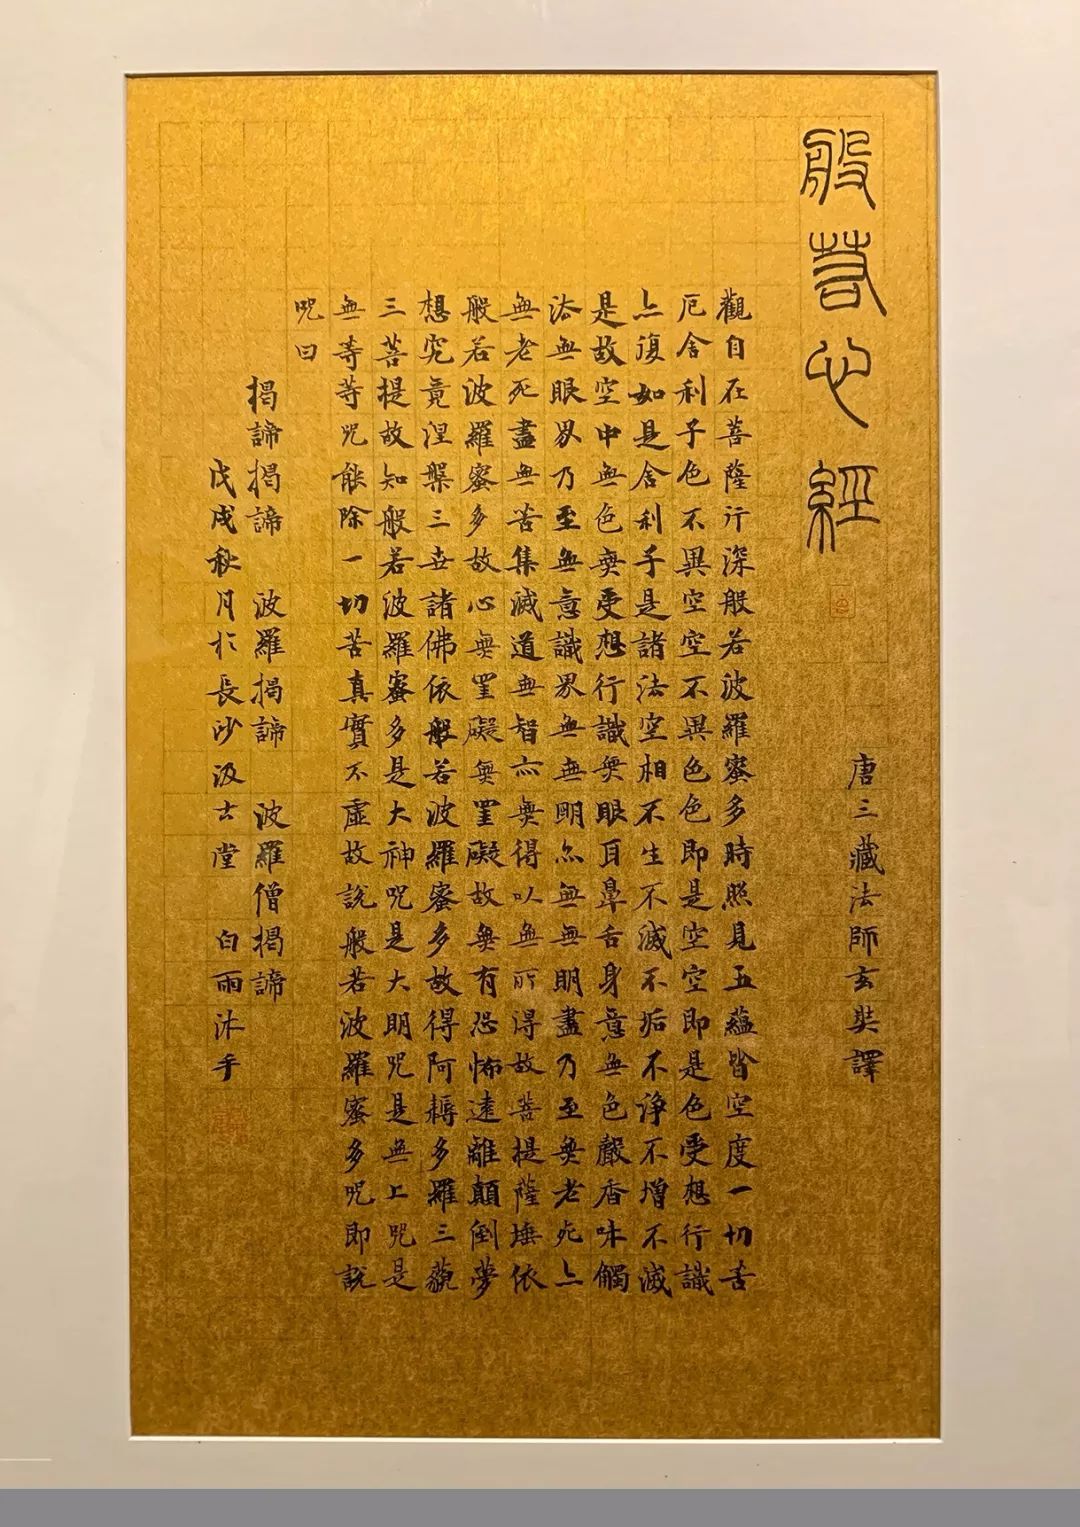 般若心經
唐三藏法師玄奘譯
觀自在菩薩行深般若波羅蜜多時照見五蘊皆空度一切苦
厄舍利子色不異空空不異色色即是空空即是色受想行識
亦復如是舍利子是諸法空相不生不滅不垢不淨不增不減
是故空中無色無受想行識無眼耳鼻舌身意無色聲香味觸
法無眼界乃至無意識界無無明亦無無明盡乃至無老死亦
無老死盡無苦集滅道無智亦無得以無所得故菩提薩埵依
般若波羅蜜多故心無罣礙無罣礙故無有恐怖遠離顛倒夢
想究竟涅槃三世諸佛依般若波羅蜜多故得阿耨多羅三藐
三菩提故知般若波羅蜜多是大神咒是大明咒是無上咒是
無等等咒能除一切苦真實不虛故說般若波羅蜜多咒即說
咒曰
揭諦揭諦 波羅揭諦 波羅僧揭諦
戊戌秋月於長沙汲古堂 白雨沐手